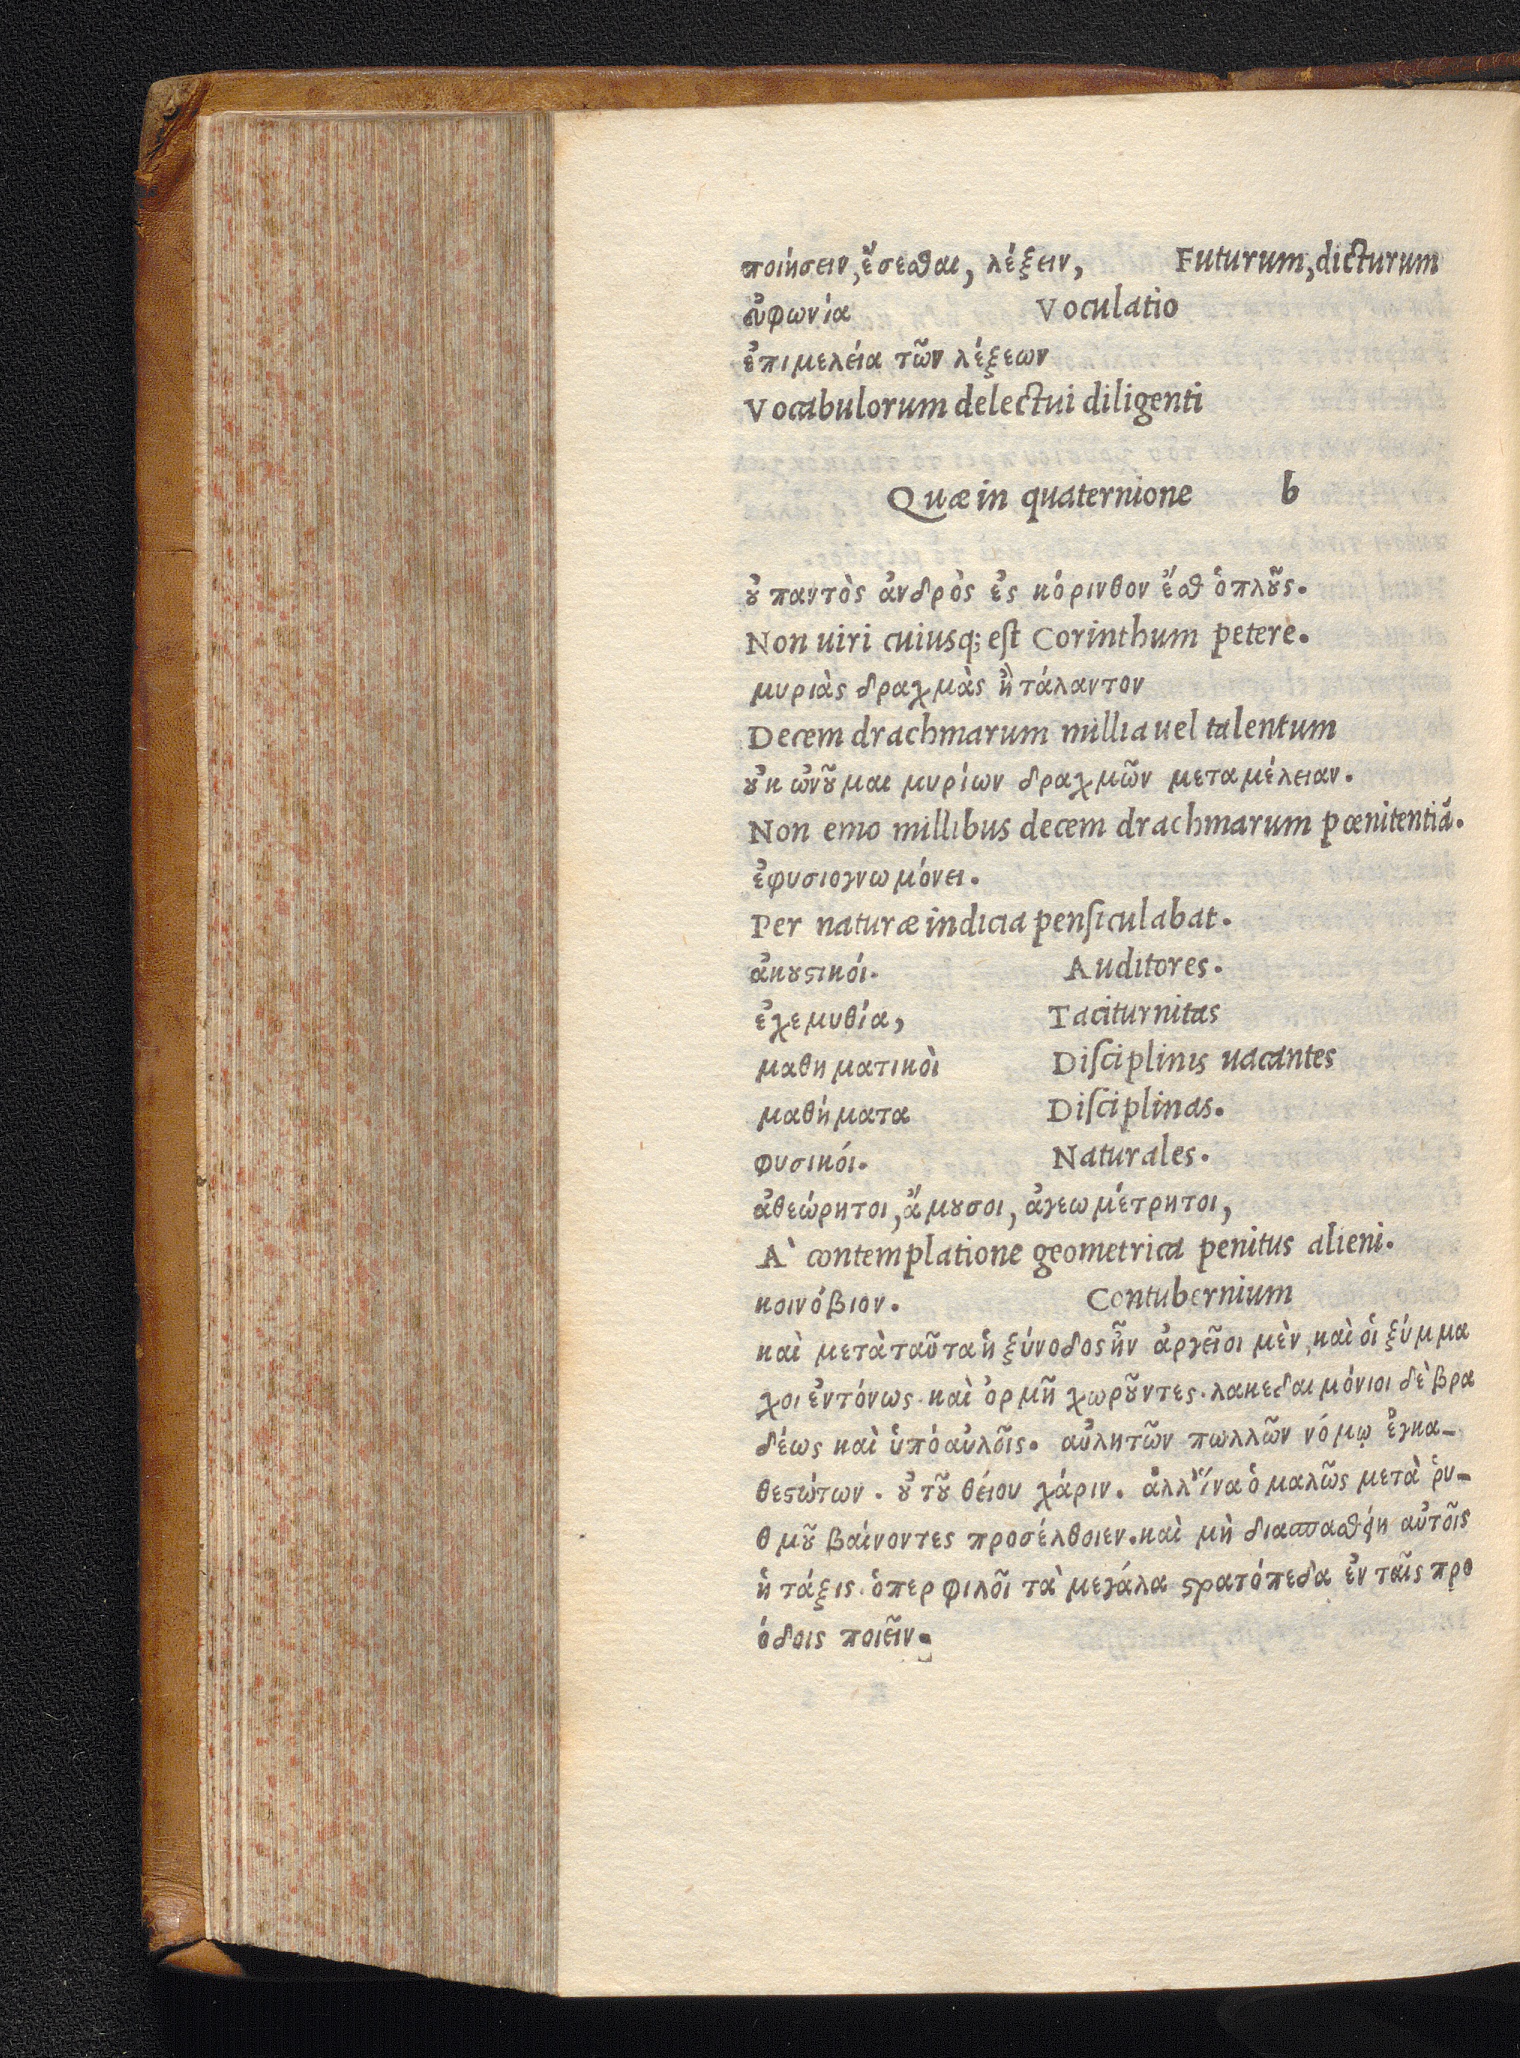 ποιήσειν, ἔσεσθαι, λέξειν, Futurum, dicturum
εὐφωνία Voculatio
ἐπιμελεία τῶν λέξεων
Vocabulorum delectui diligenti
Quæ in quaternione b
ȣ̓ παντὸς ἀνδρὸς ἐς κόρινθον ἔσθ ὁπλȣ͂ς.
Non uiri cuiusq; eſt Corinthum petere.
μυριὰς δραχμὰς ἢ τάλαντον
Decem drachmarum millia uel talentum
ȣ̓κ ὠνȣ͂μαι μυρίων δραχμῶν μεταμέλειαν.
Non emo millibus decem drachmarum pœnitentiã.
ἐφυσιογνωμόνει.
Per naturæ indicia penſiculabat.
ἀκȣϛικόι. Auditores.
ἐχεμυθία, Taciturnitas
μαθηματικοὶ Diſciplinis uacantes
μαθήματα Diſciplinas.
φυσικόι. Naturales.
ἀθεώρητοι, ἄμȣσοι, ἀγεωμέτρητοι,
A` contemplatione geometrica penitus alieni.
κοινόβιον. Contubernium
καὶ μετὰ ταῦτα ἡ ξύνοδος ἦν ἀργεῖοι μὲν, καὶ ὁι ξύμμα
χοι ἐντόνως. καὶ ὀρμῆ χωρȣ͂ντες. λακεδαιμόνιοι δὲ βρα
δέως καὶ ὑπό αὐλοῖς. αὐλητῶν πωλλῶν νόμῳ ἐγκα-
θεϛώτων. ȣ̓ τȣ͂ θείου χάριν. ἀλλ' ἵνα ὁμαλῶς μετὰ ῥυ-
θμȣ͂ βαίνοντες προσέλθοιεν. καὶ μὴ διασπασθείη αὐτοῖς
ἡ τάξις. ὁπερ φιλοῖ τὰ μεγάλα ϛρατόπεδα ἐν ταῖς προ
όδοις ποιεῖν.